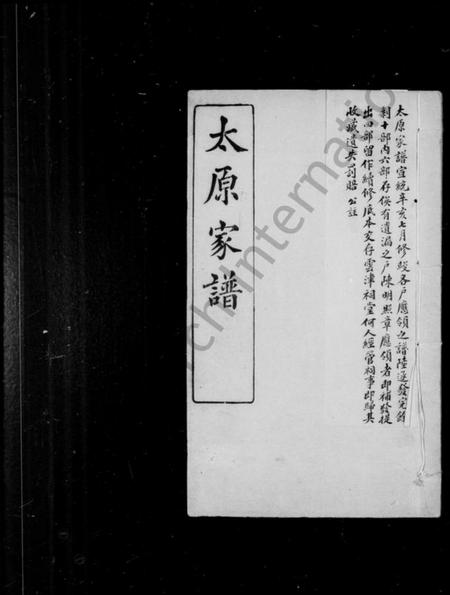 太原家譜宣統辛亥七月修竣各戶應領之譜陸逐發完餘
剩十部內六部存俟有遺漏之戶陳明照章應領者即補發提
出四部留作續修底本交存雲津祠堂何人經管祠事即歸其
收藏遺失罰賠 公註
太原家譜